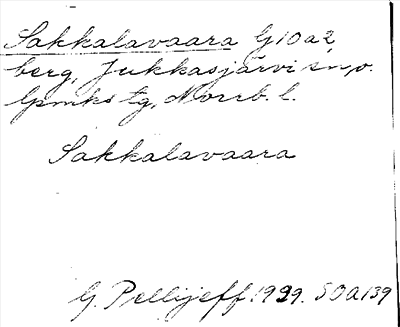 Sakkalavaara G10a2
berg, Jukkasjärvi sn, o.
lpmks tg, Norrb. l.
Sakkalavaara
G. Pellijeff 1939. 50a139